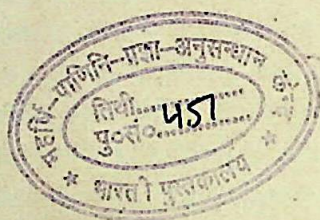 महर्षि-पाणिनि-प्रज्ञा-अनुसन्धान केन्द्र
तिथी..................
पु०सं०..457..........
* भारती पुस्तकालय *